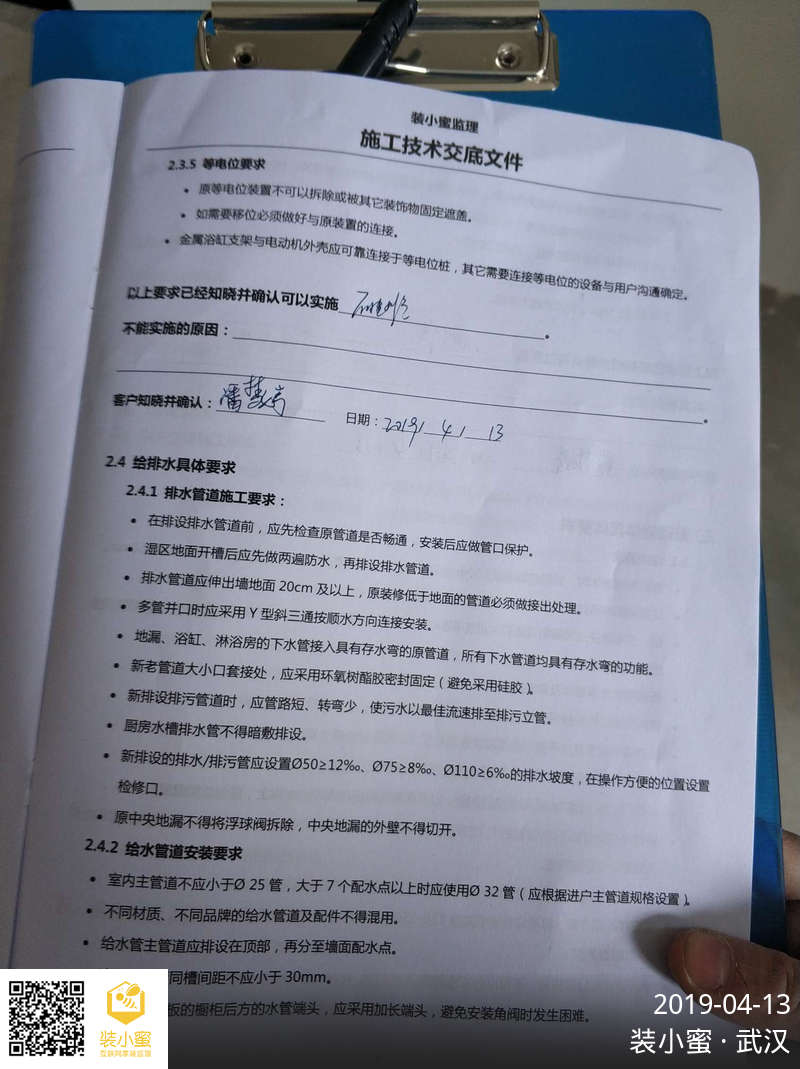 装小蜜监理
施工技术交底文件
2.3.5 等电位要求
• 原等电位装置不可以拆除或被其它装饰物固定遮盖。
• 如需要移位必须做好与原装置的连接。
• 金属浴缸支架与电动机外壳应可靠连接于等电位桩，其它需要连接等电位的设备与用户沟通确定。
以上要求已经知晓并确认可以实施
不能实施的原因：
客户知晓并确认：潘
日期：2019 / 4 / 13
2.4 给排水具体要求
2.4.1 排水管道施工要求：
• 在排设排水管道前，应先检查原管道是否畅通，安装后应做管口保护。
• 湿区地面开槽后应先做两遍防水，再排设排水管道。
• 排水管道应伸出墙地面 20cm 及以上，原装修低于地面的管道必须做接出处理。
• 多管并口时应采用 Y 型斜三通按顺水方向连接安装。
• 地漏、浴缸、淋浴房的下水管接入具有存水弯的原管道，所有下水管道均具有存水弯的功能。
• 新老管道大小口套接处，应采用环氧树酯胶密封固定（避免采用硅胶）。
• 新排设排污管道时，应管路短、转弯少，使污水以最佳流速排至排污立管。
• 厨房水槽排水管不得暗敷排设。
• 新排设的排水/排污管应设置Ø50≥12‰、Ø75≥8‰、Ø110≥6‰的排水坡度，在操作方便的位置设置
检修口。
• 原中央地漏不得将浮球阀拆除，中央地漏的外壁不得切开。
2.4.2 给水管道安装要求
• 室内主管道不应小于Ø 25 管，大于 7 个配水点以上时应使用Ø 32 管（应根据进户主管道规格设置）。
• 不同材质、不同品牌的给水管道及配件不得混用。
• 给水管主管道应排设在顶部，再分至墙面配水点。
同槽间距不应小于 30mm。
板的橱柜后方的水管端头，应采用加长端头，避免安装角阀时发生困难。
装小蜜
互联网家装监理
2019-04-13
装小蜜·武汉